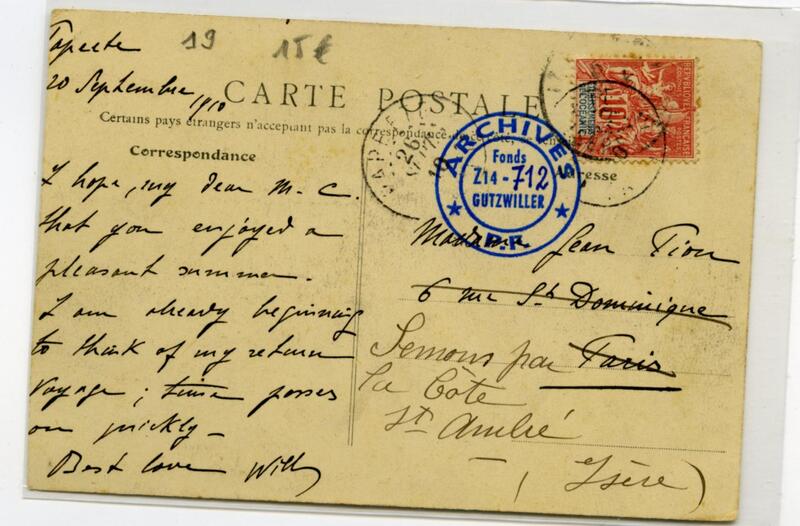 Papeete
19 15€
20 Septembre 1910
CARTE POSTALE
Certains pays étrangers n'acceptant pas la correspondance
Correspondance
Adresse
I hope, my dear M. C.
that you enjoyed a
pleasant summer.
I am already beginning
to think of my return
voyage; time passes
on quickly_
Best love Willy
PAPEETE
26
10
ARCHIVES
Fonds
Z14-712
GUTZWILLER
P.F.
RÉPUBLIQUE FRANÇAISE
COLONIES
POSTES
10
OCÉANIE
Madame Jean Tion
6 rue St Dominique
Paris
Semons par
la Côte
St André
(Isère)